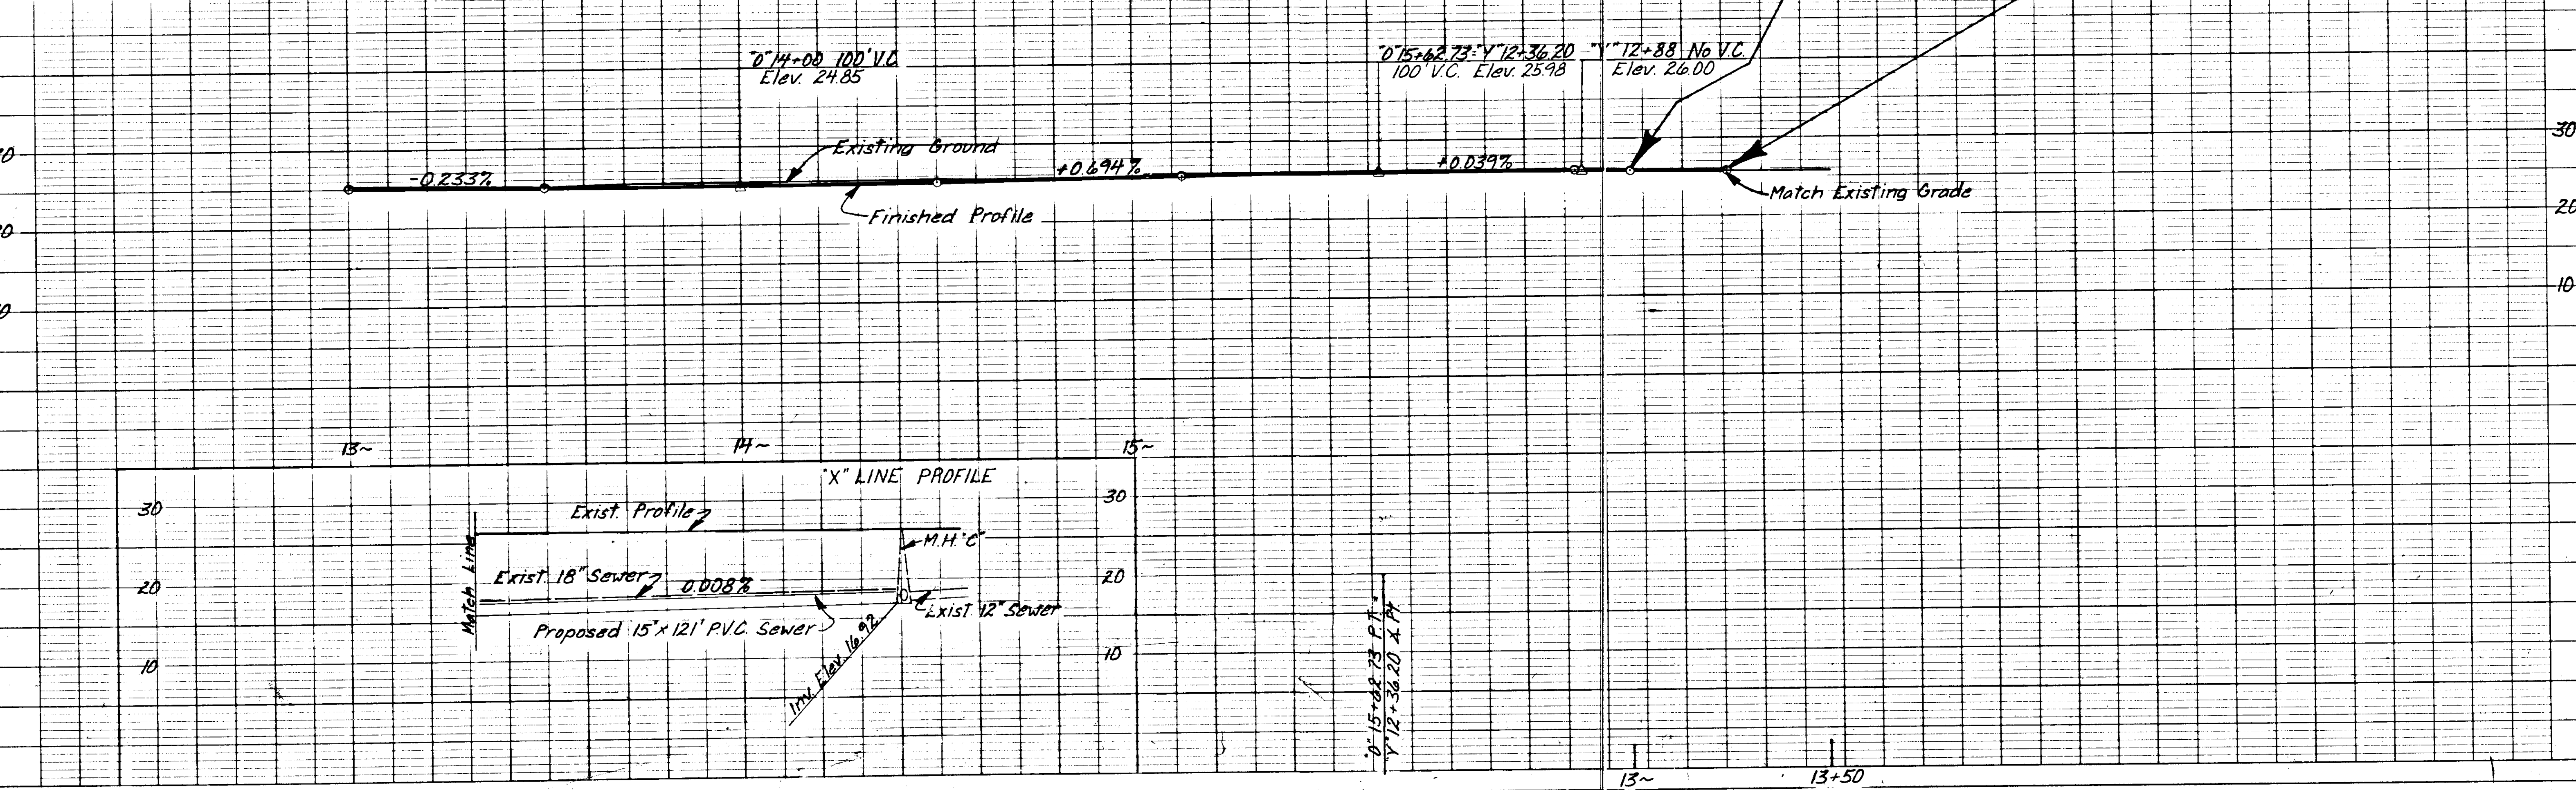 "O" 14+00 100' V.C.
Elev. 24.85
"O" 15+62.73="Y" 12+36.20
100' V.C. Elev. 25.98
"Y" 12+88 No V.C.
Elev. 26.00
Existing Ground
-0.233%
+0.694%
+0.039%
Finished Profile
Match Existing Grade
30
20
10
13~
14~
15~
"X" LINE PROFILE
30
30
Exist. Profile
M.H. "C"
Match Line
Exist. 18" Sewer
0.008%
20
20
Exist. 12" Sewer
Proposed 15" x 121' P.V.C. Sewer
10
10
Inv. Elev. 16.92
"O" 15+62.73 P.T. =
"Y" 12+36.20 ∠ Pt.
13~
13+50